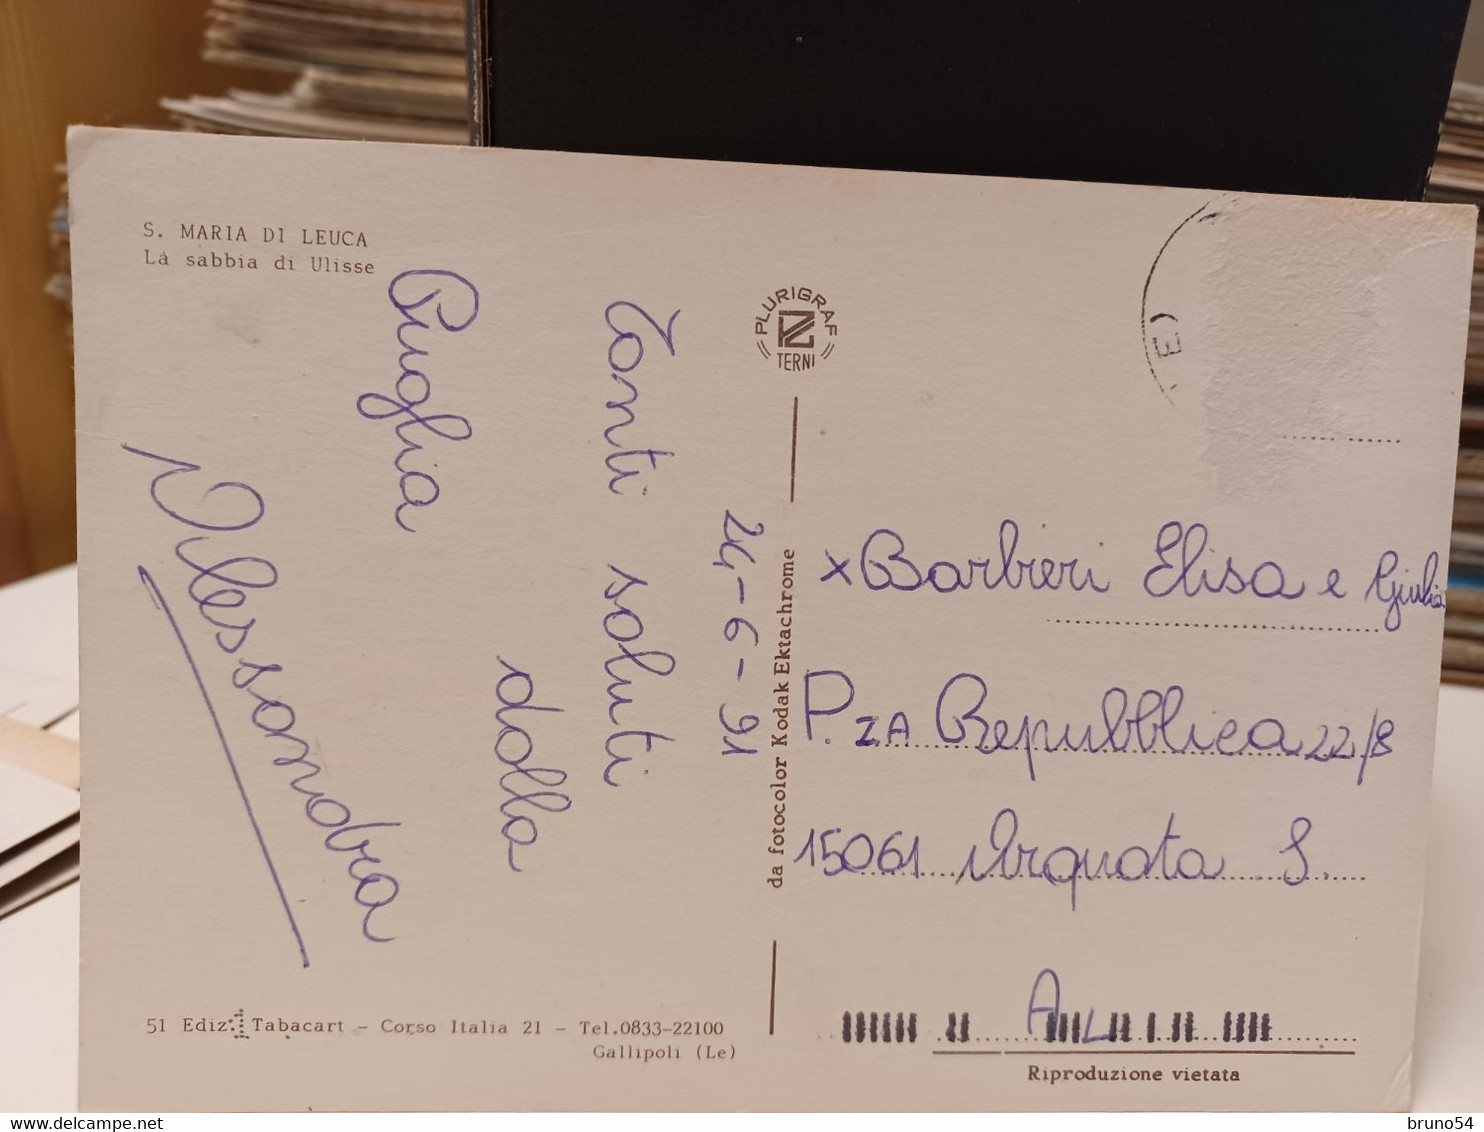 S. MARIA DI LEUCA
La sabbia di Ulisse
24-6-91
Tanti saluti
dalla
Puglia
Alessandra
51 Ediz. Tabacart - Corso Italia 21 - Tel.0833-22100
Gallipoli (Le)
PLURIGRAF
TERNI
da fotocolor Kodak Ektachrome
x Barbieri Elisa e Giulia
P.ZA Repubblica 22/8
15061 Arquata S.
AL
Riproduzione vietata
bruno54